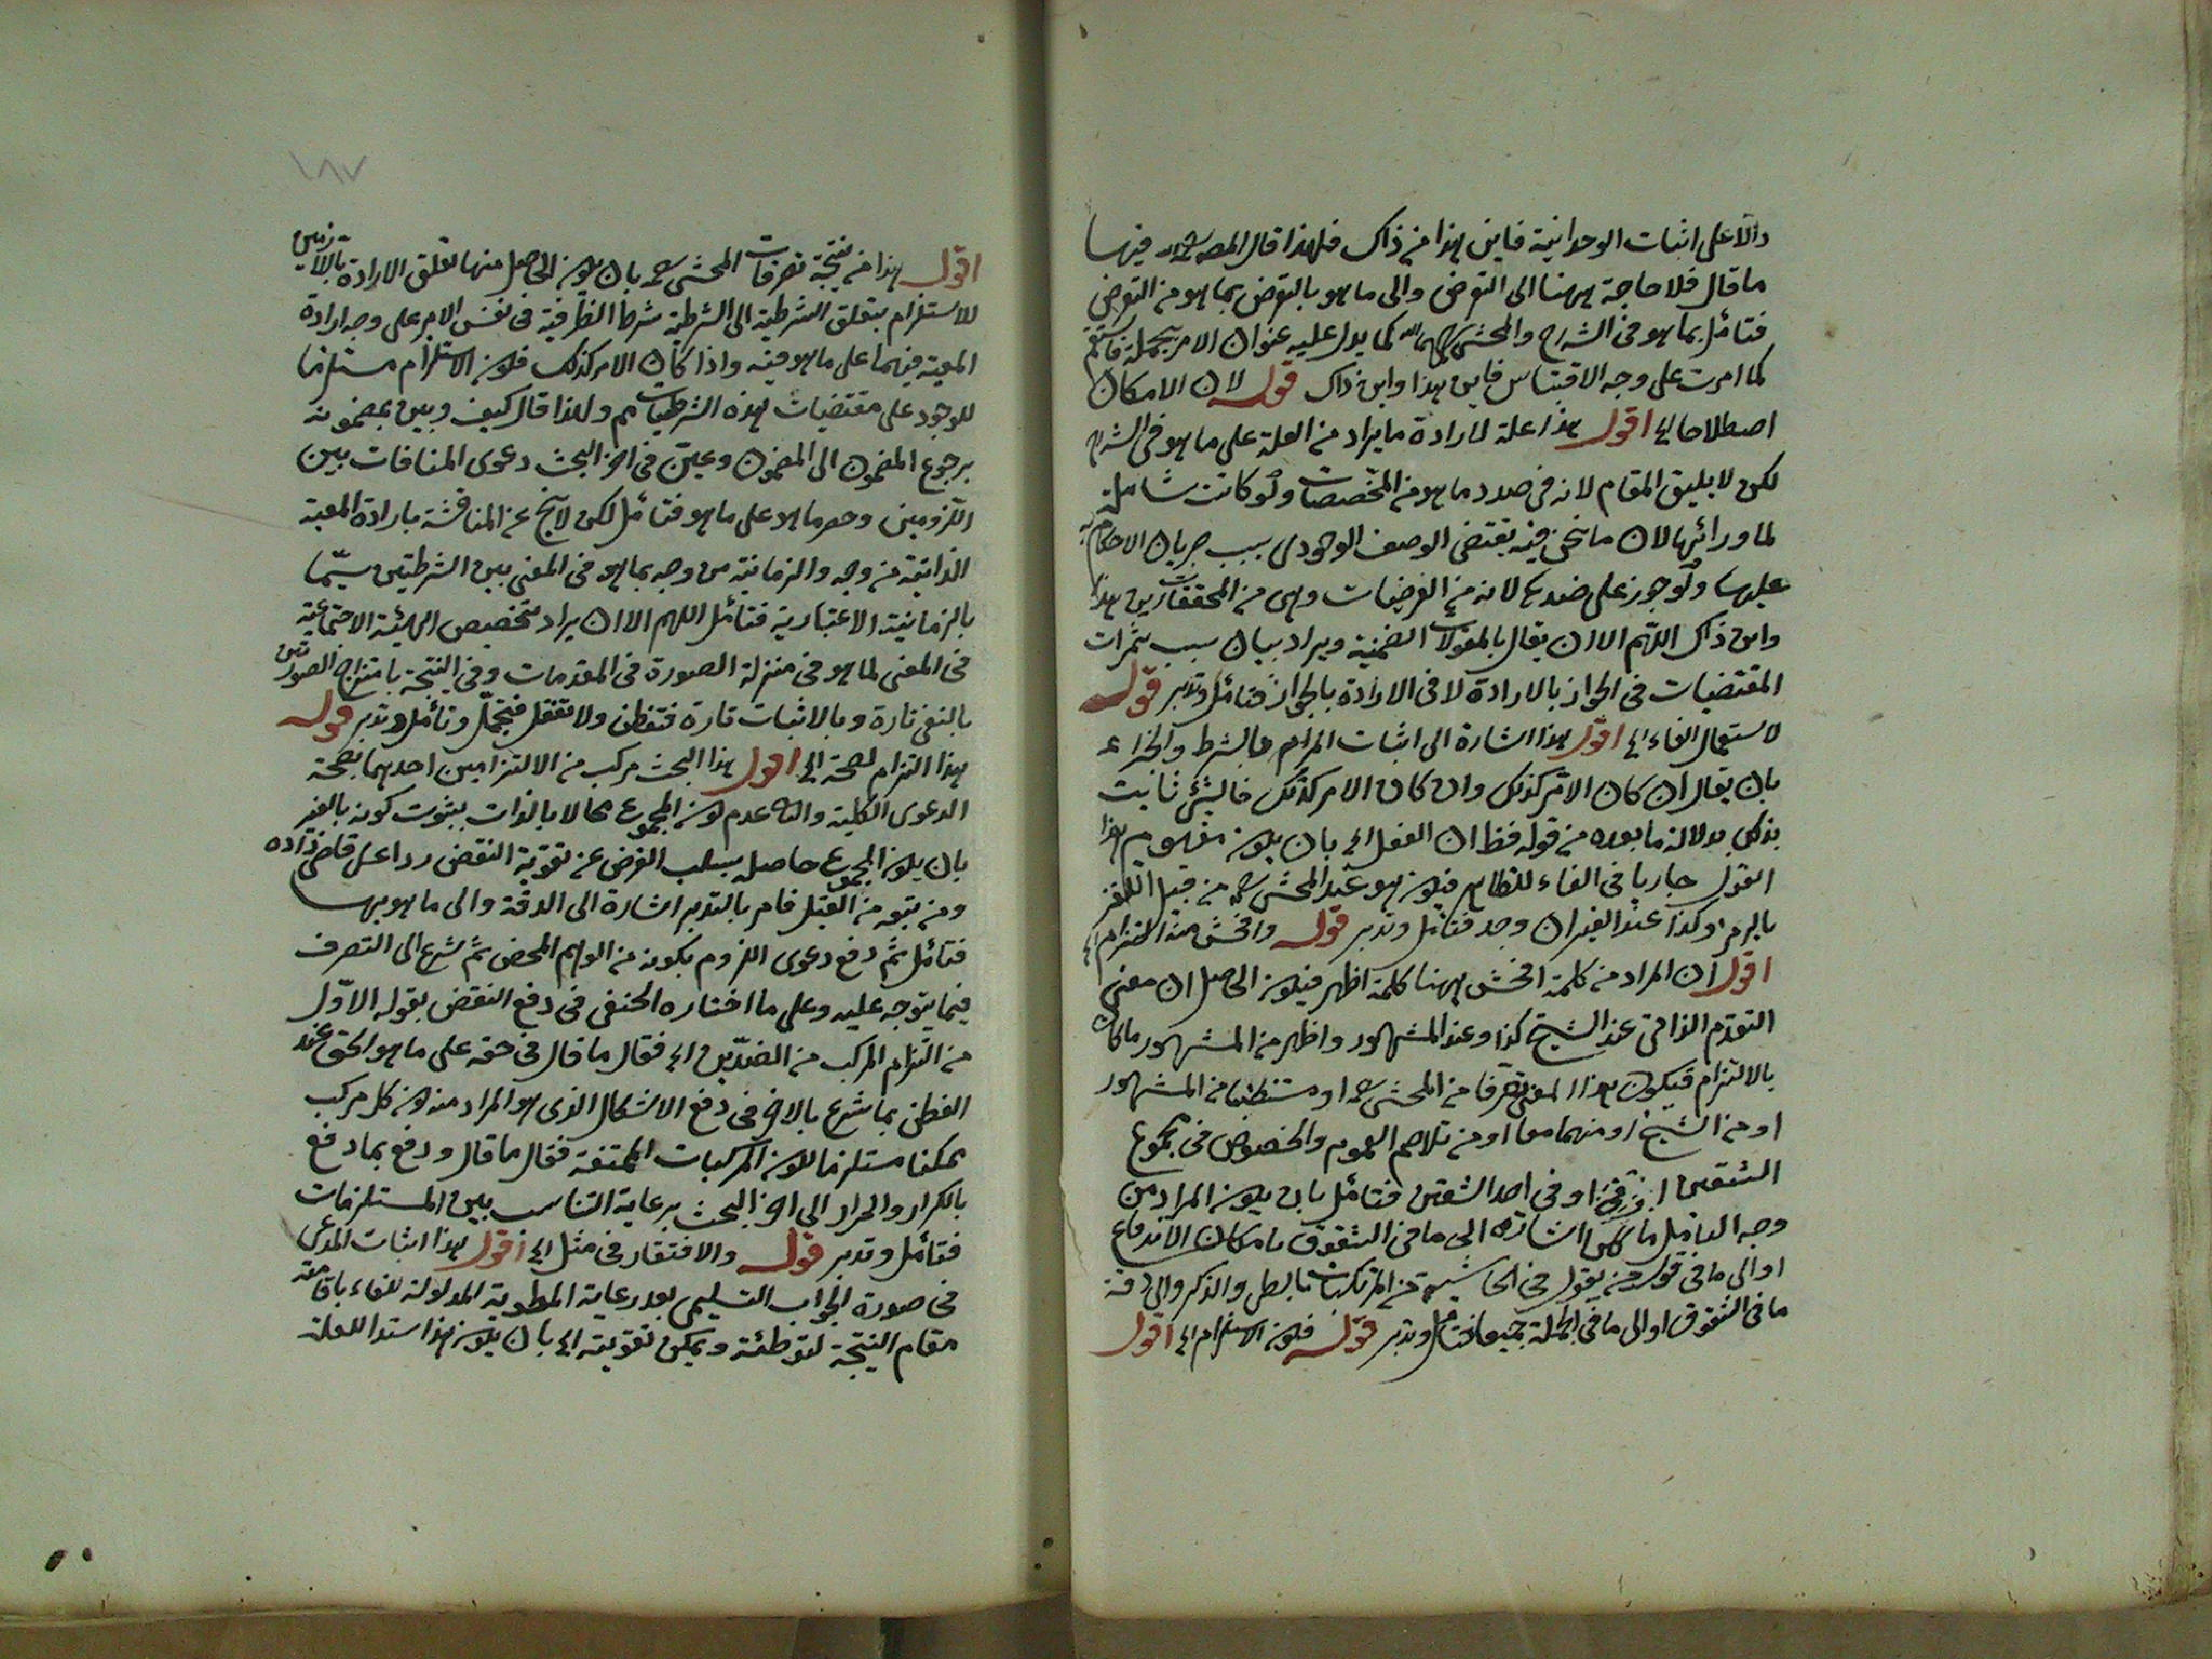 دالا على اثبات الوحدانية فاين هذا من ذاك فلهذا قال المص فيها
ما قال فلا حاجة ههنا الى التعرض والى ما هو بالتعرض بما هو من التعرض
فتأمل بما هو فى الشارح والمحشى كما يدل عليه عنوان الامر بتجمله فاستقم
كما امرت على وجه الاقتباس فاين هذا واين ذاك قوله لان الامكان
اصطلاحا الخ اقول هذا علة لارادة ما يراد من العلة على ما هو فى الشرح
لكن لا يليق المقام لانه فى صدد ما هو من المخصصات ولو كانت شاملة
لما ورائها لان ما نحن فيه يقتضى الوصف الوجودى بسبب جريان الاحكام
عليها ولو جوز على ضده لانه من الفرضيات وهى من المحققات اين هذا
واين ذاك اللهم الا ان يقال بالمقولات الضمنية ويراد بيان سبب ثمرات
المقتضيات فى الجواز بالارادة لا فى الارادة بالجواز فتأمل وتدبر قوله
لاستعمال الفاء الخ اقول هذا اشارة الى اثبات المرام بالشرط والجزاء
بان يقال ان كان الامر كذلك وان كان الامر كذلك فالشئ ثابت
بذلك بدلالة ما بعده من قوله فظ ان الفعل الخ بان يكون مفهوم هذا
القول جاريا فى الفاء للنظام فيكون هو عند المحشى من قبيل اللغز
بالرمز وكذا عند الغير ان وجد فتأمل وتدبر قوله وافحش منه التزام الخ
اقول ان المراد من كلمة افحش ههنا كلمة اظهر فيكون الحاصل ان معنى
التقدم الذاتى عند الشيخ كذا وعند المشهور واظهر من المشهور ما كان
بالالتزام فيكون هذا المعنى تصرفا من المحشى او مستنبطا من المشهور
او من الشيخ او منهما معا او من تلاحم العموم والخصوص فى مجموع
الشقين او فى احد الشقين فتأمل بان يكون المراد من
وجه التأمل اشارة الى ما فى الشقوق بامكان الاندفاع
او الى ما فى قوله من يقول فى الحاشية من المرتكبات والذكر والى دقة
ما فى الشقوق او الى ما فى الجملة جميعا فتأمل وتدبر قوله فكون الاستلزام الخ اقول
١٨٧
اقول هذا من نتيجة تصرفات المحشى بان يكون الحاصل منها تعلق الارادة باللازمين
للاستلزام بتعلق الشرطية الى الشرطية شرط الظرفية فى نفس الامر على وجه ارادة
المعية فيهما على ما هو فيه واذا كان الامر كذلك فكون الاستلزام مستلزما
للوجود على مقتضيات هذه الشرطيات مم ولهذا قال كيف وبين بمضمونه
برجوع المضمون الى المضمون وعين فى اخر البحث دعوى المنافات بين
اللزومين وحصر ما هو على ما هو فتأمل لكن لا ينج عن المناقشة بارادة المعية
الذاتية من وجه والزمانية من وجه بما هو فى المعنى بين الشرطيتين سيما
بالزمانية الاعتبارية فتأمل اللهم الا ان يراد تخصيص الهيئة الاجتماعية
فى المعنى لما هو فى منزلة الصورة فى المقدمات وفى النتيجة بامتزاج الصورتين
بالنفى تارة وبالاثبات تارة فتفطن ولا تغفل فتجمل وتأمل وتدبر قوله
هذا التزام لصحة الخ اقول هذا البحث مركب من الالتزامين احدهما بصحة
الدعوى الكلية والثانى عدم كون المجموع محالا بالذات بثبوت كونه بالغير
بان يكون المجموع حاصله بسلب الفرض عن تقوية النقض ردا على قاضى زاده
ومن تبعه من القيل فامر بالتدبر اشارة الى الدقة والى ما هو بها
فتأمل ثم دفع دعوى اللزوم بكونه من الوهم المحض ثم شرع الى التصرف
فيما يتوجه عليه وعلى ما اختاره الحنفى فى دفع النقض بقوله الاول
من التزام المركب من الضدين الخ فقال ما قال فى حقه على ما هو الحق عند
الفطن بما شرع بالاخر فى دفع الاشكال الذى هو المراد منه من كل مركب
ممكنا مستلزما لكون المركبات الممتنعة فقال ما قال ودفع بما دفع
بالكرار والمرار الى اخر البحث برعاية التناسب بين المستلزمات
فتأمل وتدبر قوله والافتقار فى مثل الخ اقول هذا اثبات المدعى
فى صورة الجواب التسليمى بعد رعاية المطوية المدلولة للفاء باقامته
مقام النتيجة لتوطئة ويمكن تقويته الخ بان يكون هذا سندا للعلة